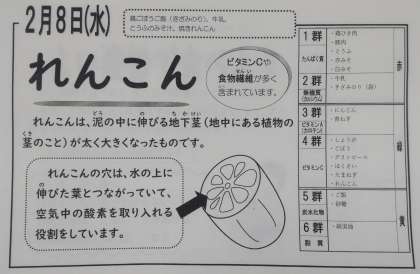 2月8日(水)
鶏ごぼうご飯（きざみのり）、牛乳、
とうふのみそ汁、焼きれんこん
れんこん
ビタミンCや
食物繊維が多く
含まれています。
れんこんは、泥の中に伸びる地下茎（地中にある植物の
茎のこと）が太く大きくなったものです。
れんこんの穴は、水の上に
伸びた葉とつながっていて、
空気中の酸素を取り入れる
役割をしています。
1群
たんぱく質
・鶏ひき肉
・豚肉
・とうふ
・赤みそ
・白みそ
赤
2群
無機質
(カルシウム)
・牛乳
・きざみのり（袋）
3群
ビタミンA
(カロテン)
・にんじん
・青ねぎ
緑
4群
ビタミンC
・しょうが
・ごぼう
・グリンピース
・はくさい
・たまねぎ
・れんこん
5群
炭水化物
・ご飯
・砂糖
黄
6群
脂質
・綿実油